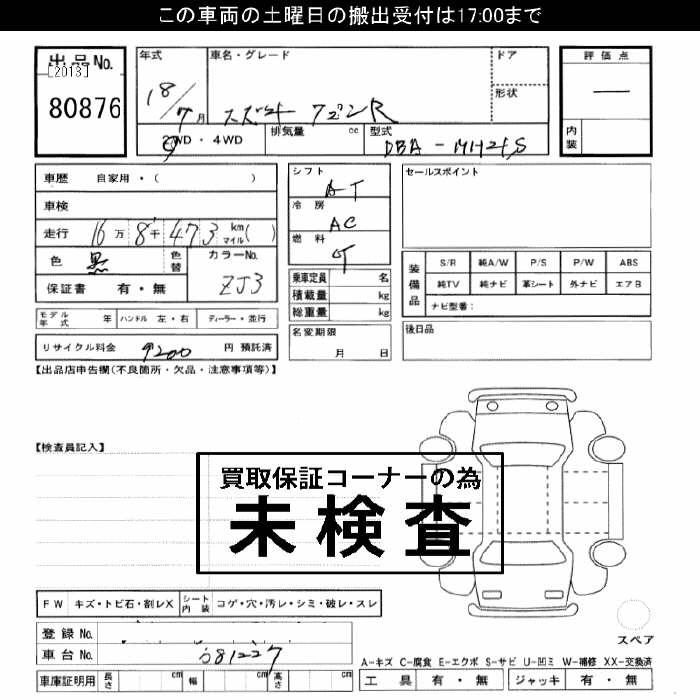 この車両の土曜日の搬出受付は17:00まで
出品No.
[2013]
80876
年式
18/7月
車名・グレード
スズキ ワゴンR
ドア
形状
評価点
内装
2WD・4WD
排気量 cc
型式
DBA-MH21S
車歴 自家用・( )
車検
走行 16万 8千 473 km マイル( )
色 黒
色替
カラーNo.
ZJ3
保証書 有・無
シフト
AT
冷房
AC
燃料
乗車定員 名
積載量 kg
総重量 kg
セールスポイント
装備品
S/R 純A/W P/S P/W ABS
純TV 純ナビ 革シート 外ナビ エアB
ナビ型番:
モデル年式 年
ハンドル 左・右
ディーラー・並行
名変期限
月 日
後日品
リサイクル料金 9200 円 預託済
【出品店申告欄(不良箇所・欠品・注意事項等)】
【検査員記入】
買取保証コーナーの為
未検査
FW キズ・トビ石・割レX
シート内装 コゲ・穴・汚レ・シミ・破レ・スレ
登録No.
車台No. 681227
車庫証明用 長さ cm 幅 cm 高さ cm
スペア
A-キズ C-腐食 E-エクボ S-サビ U-凹ミ W-補修 XX-交換済
工具 有・無 ジャッキ 有・無